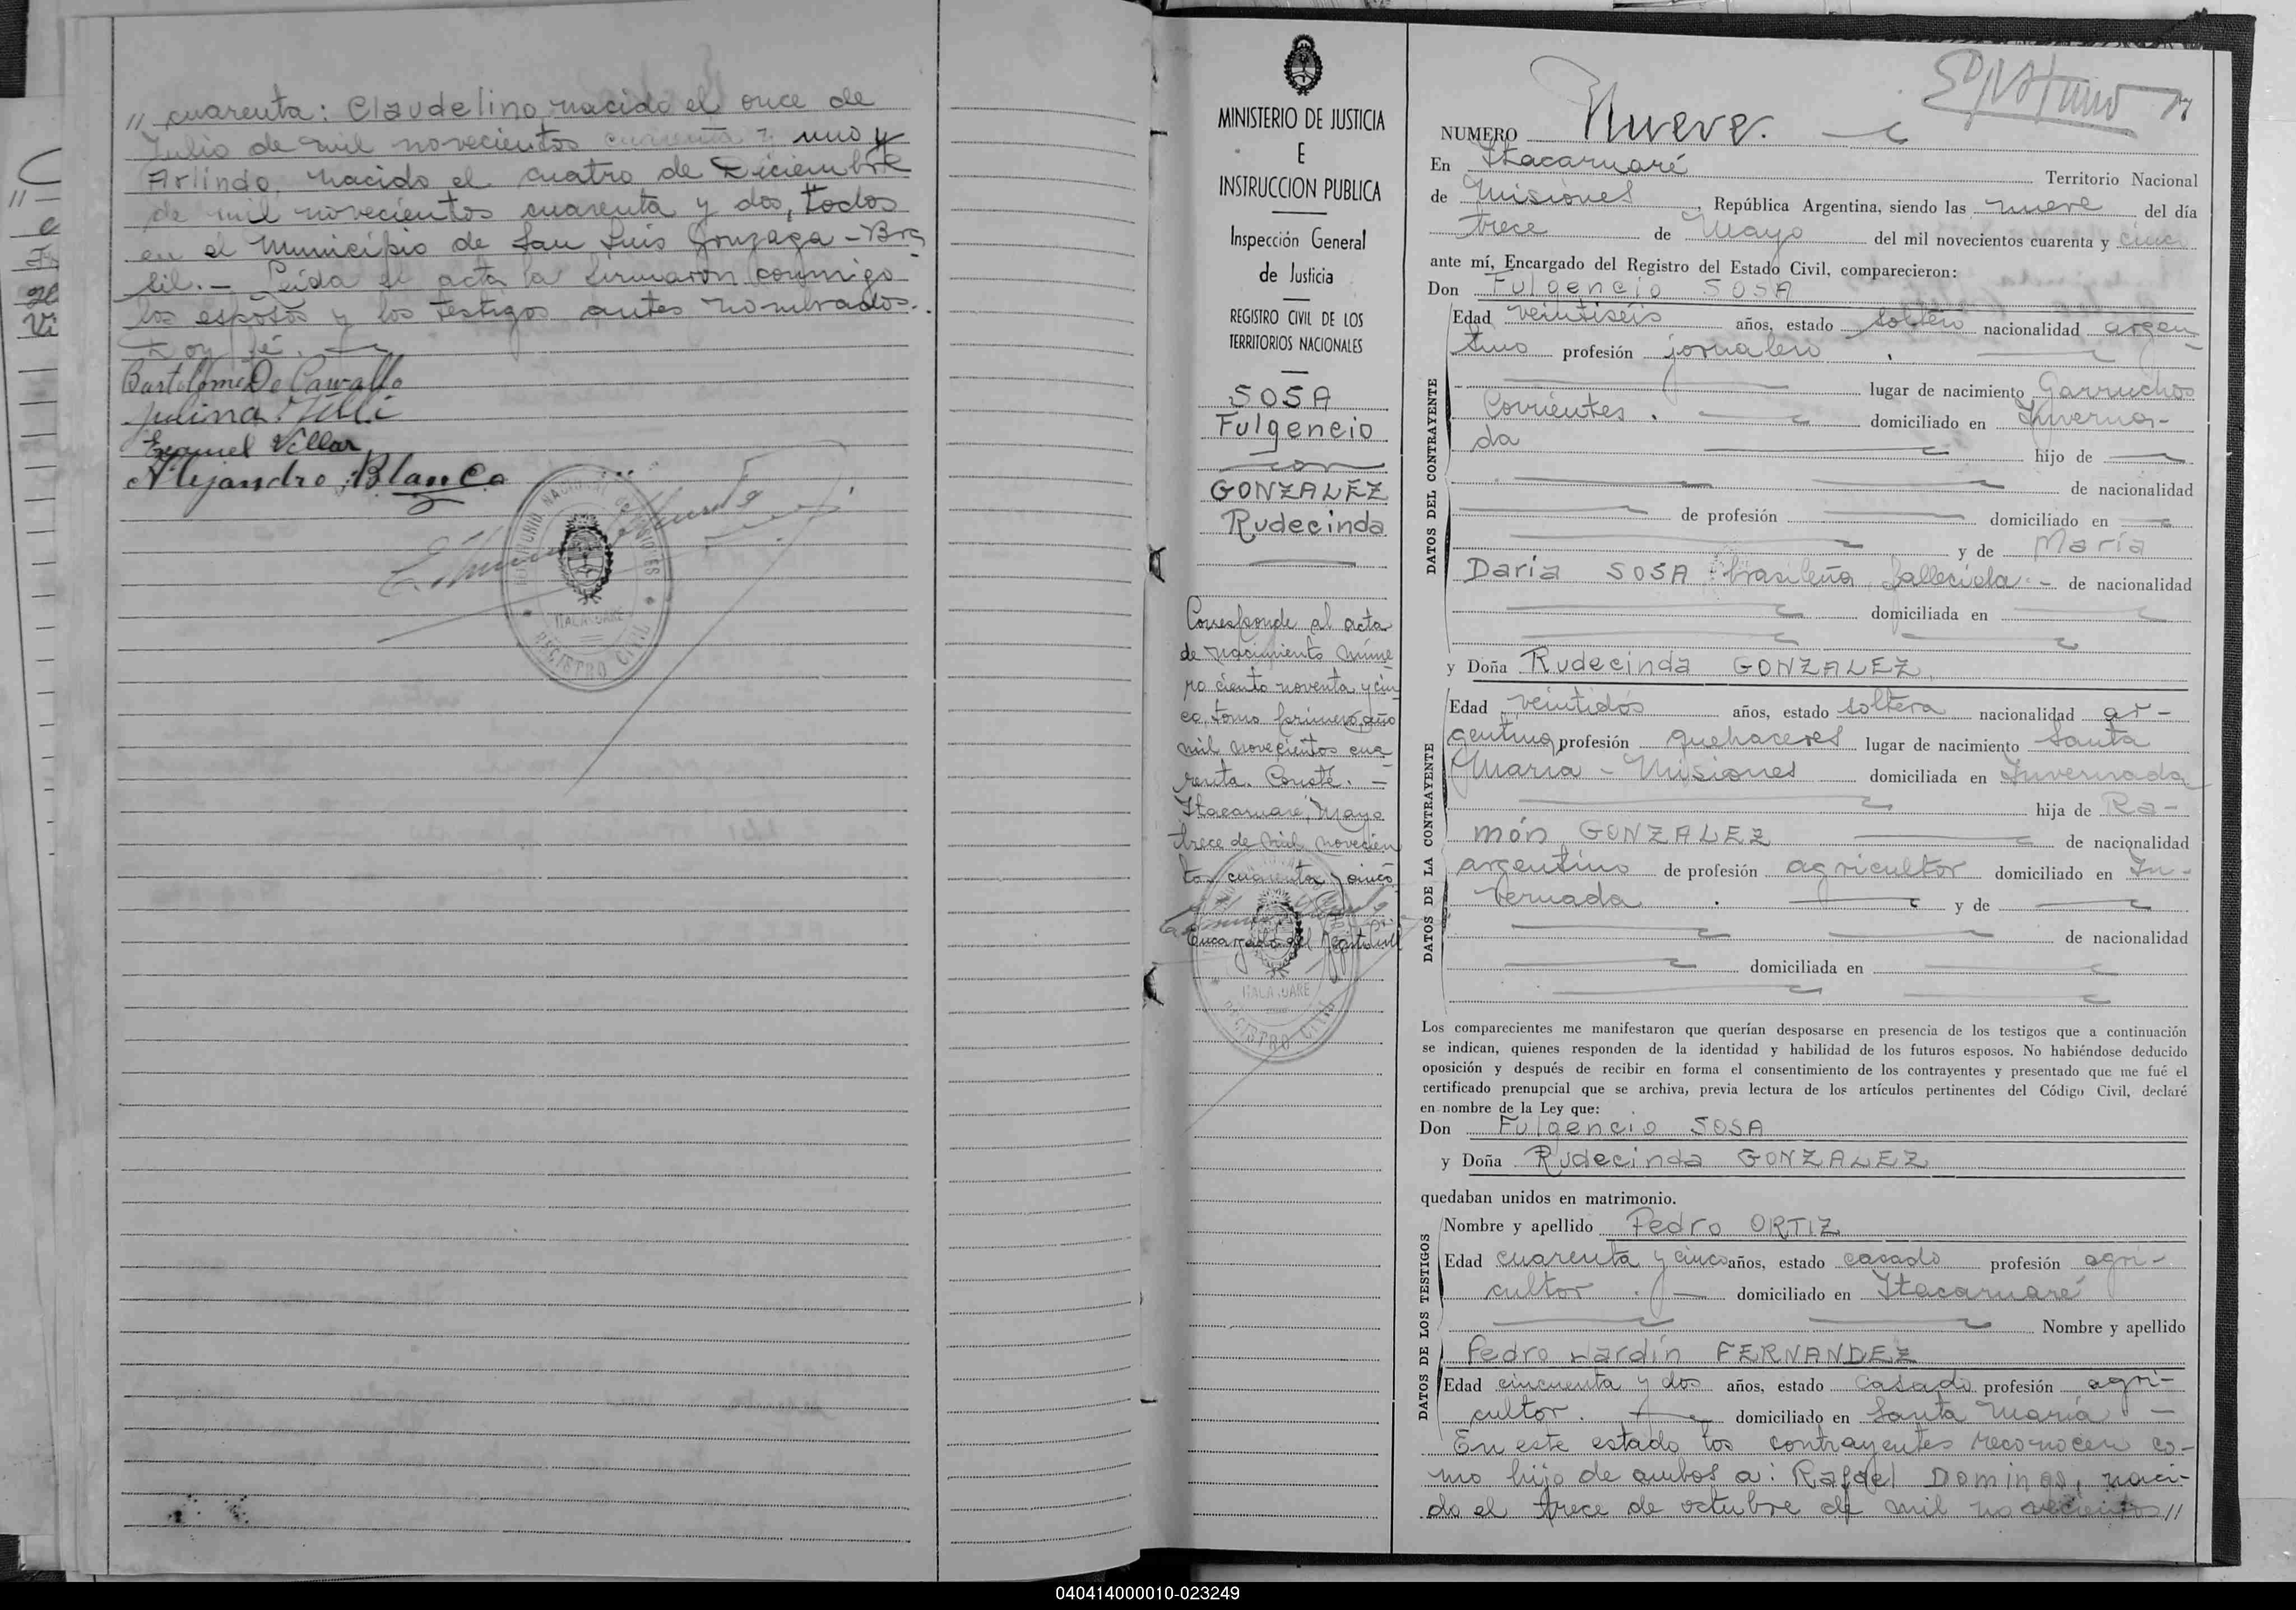 // cuarenta: Claudelino, nacido el once de
Julio de mil novecientos cuarenta y uno y
Arlindo, nacido el cuatro de Diciembre
de mil novecientos cuarenta y dos, todos
en el Municipio de San Luis Gonzaga - Bra
sil. - Leida el acta la firmaron conmigo
los esposos y los testigos antes nombrados.
Doy fé.
Bartolome De Carvallo
Julina
Ezequiel Villar
Alejandro Blanco
REGISTRO CIVIL
MINISTERIO DE JUSTICIA
E
INSTRUCCION PUBLICA
Inspección General
de Justicia
REGISTRO CIVIL DE LOS
TERRITORIOS NACIONALES
SOSA
Fulgencio
con
GONZALEZ
Rudecinda
Corresponde al acta
de nacimiento núme
ro ciento noventa y cin
co, tomo primero, año
mil novecientos cua
renta. Conste. -
Itacaruaré, Mayo
trece de mil novecien
tos cuarenta y cinco
Encargado del Registro Civil
REGISTRO CIVIL
17
NUMERO Nueve.
En Itacaruaré Territorio Nacional
de Misiones, República Argentina, siendo las nueve del día
trece de Mayo del mil novecientos cuarenta y cinco
ante mí, Encargado del Registro del Estado Civil, comparecieron:
Don Fulgencio SOSA
DATOS DEL CONTRAYENTE
Edad veintiseis años, estado soltero nacionalidad argen
tino profesión jornalero
lugar de nacimiento Garruchos
Corrientes. domiciliado en Inverna-
da hijo de
de nacionalidad
de profesión domiciliado en
y de María
Daria SOSA brasileña fallecida. - de nacionalidad
domiciliada en
y Doña Rudecinda GONZALEZ
DATOS DE LA CONTRAYENTE
Edad veintidós años, estado soltera nacionalidad ar-
gentina profesión quehaceres lugar de nacimiento Santa
Maria - Misiones domiciliada en Invernada
hija de Ra-
món GONZALEZ de nacionalidad
argentino de profesión agricultor domiciliado en In-
vernada. y de
de nacionalidad
domiciliada en
Los comparecientes me manifestaron que querían desposarse en presencia de los testigos que a continuación
se indican, quienes responden de la identidad y habilidad de los futuros esposos. No habiéndose deducido
oposición y después de recibir en forma el consentimiento de los contrayentes y presentado que me fué el
certificado prenupcial que se archiva, previa lectura de los artículos pertinentes del Código Civil, declaré
en nombre de la Ley que:
Don Fulgencio SOSA
y Doña Rudecinda GONZALEZ
quedaban unidos en matrimonio.
DATOS DE LOS TESTIGOS
Nombre y apellido Pedro ORTIZ
Edad cuarenta y cinco años, estado casado profesión agri-
cultor. domiciliado en Itacaruaré
Nombre y apellido
Pedro Nardín FERNANDEZ
Edad cincuenta y dos años, estado casado profesión agri-
cultor. domiciliado en Santa Maria -
En este estado los contrayentes reconocen co-
mo hijo de ambos a: Rafael Domingo, naci-
do el trece de octubre de mil novecientos //
040414000010-023249